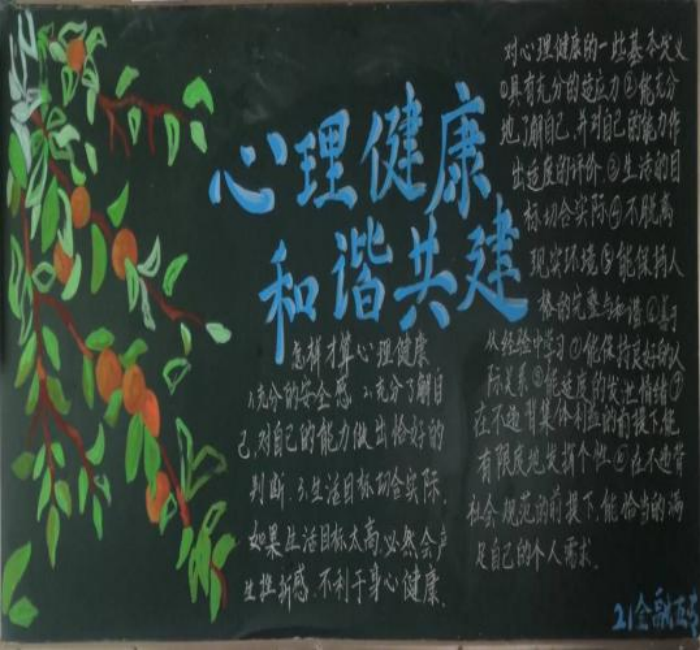 心理健康
和谐共建
怎样才算心理健康
1.充分的安全感 2.充分了解自
己,对自己的能力做出恰好的
判断.3.生活目标切合实际,
如果生活目标太高,必然会产
生挫折感,不利于身心健康.
对心理健康的一些基本定义
①具有充分的适应力②能充分
地了解自己,并对自己的能力作
出适度的评价③生活的目
标切合实际④不脱离
现实环境⑤能保持人
格的完整与和谐⑥善于
从经验中学习⑦能保持良好的人
际关系⑧能适度的发出情绪⑨
在不违背集体利益的前提下能
有限度地发挥个性⑩在不违背
社会规范的前提下,能恰当的满
足自己的个人需求.
21金融